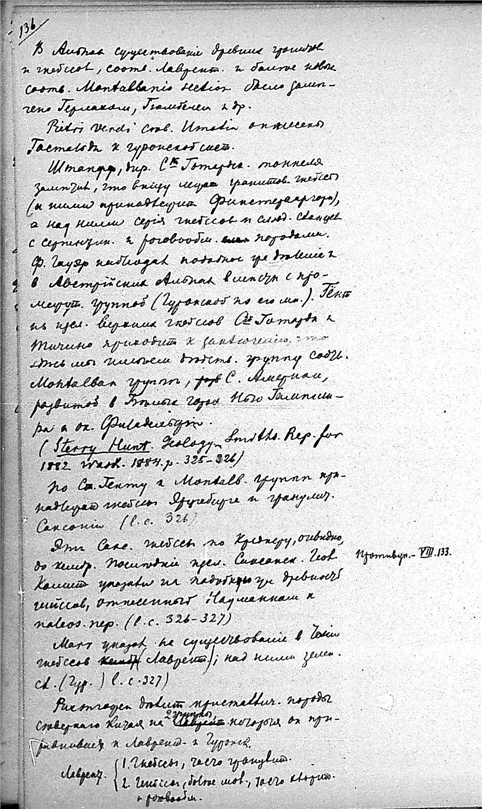 136
В Альпах существование древних гранитов
и гнейсов, соотв. Лаврент. и более новых
соотв. Montalbanio section было заме-
чено Герлахом, Гюмбелем и др.
Pietri verdi соотв. Umatia отнесены
Гастальди к гуронской сист.
Штапфф, дир. Ст. Готардск. тоннеля
заметил, что внизу лежат гранитов. гнейсы
(к ним принадлежит Финстераргорн),
а над ними серія гнейсов и слюд. сланцев
с серпентин. и роговообм. породами.
Ф. Гауэр наблюдал подобное же деление
в Австрійских Альпах вместе с про-
межут. группой (Гуронской по его мн.). Гент
из изсл. верхних гнейсов Ст. Готарда и
Тичино приходит к заключенію, что
здесь мы имеем действ. группу сходн.
Montalban группы, С. Америки,
развитой в Белых горах Нью Гемпши-
ра и ок. Филадельфіи.
(Sterry Hunt. Geology. Smiths. Rep. for
1882 Wash. 1884. p. 325-326)
По Ст. Генту к Montalb. группе при-
надлежат гнейсы Эрцгебирге и гранулит.
Саксоніи (l. c. 326)
Эти Сакс. гнейсы по Креднеру, очевидно,
до кембр. Последние изсл. Саксонск. Геол.
Комит. указали на подобную же древность
гнейсов, отнесенных Науманном к
paleos. пер. (l. c. 326-327)
Противур.- VIII. 133.
Marr указал на существование в Чехіи
гнейсов (Лаврент.); над ними зелен.
сл. (Гур.) l. c. 327)
Рихтгофен делит кристаллич. породы
северного Китая на 2 группы которыя он при-
равнивает к Лаврент. и Гуронск.
Лаврен. { 1. Гнейсы, часто гранулит.
2. Гнейсы, более нов., часто хлорит.
и роговообм.